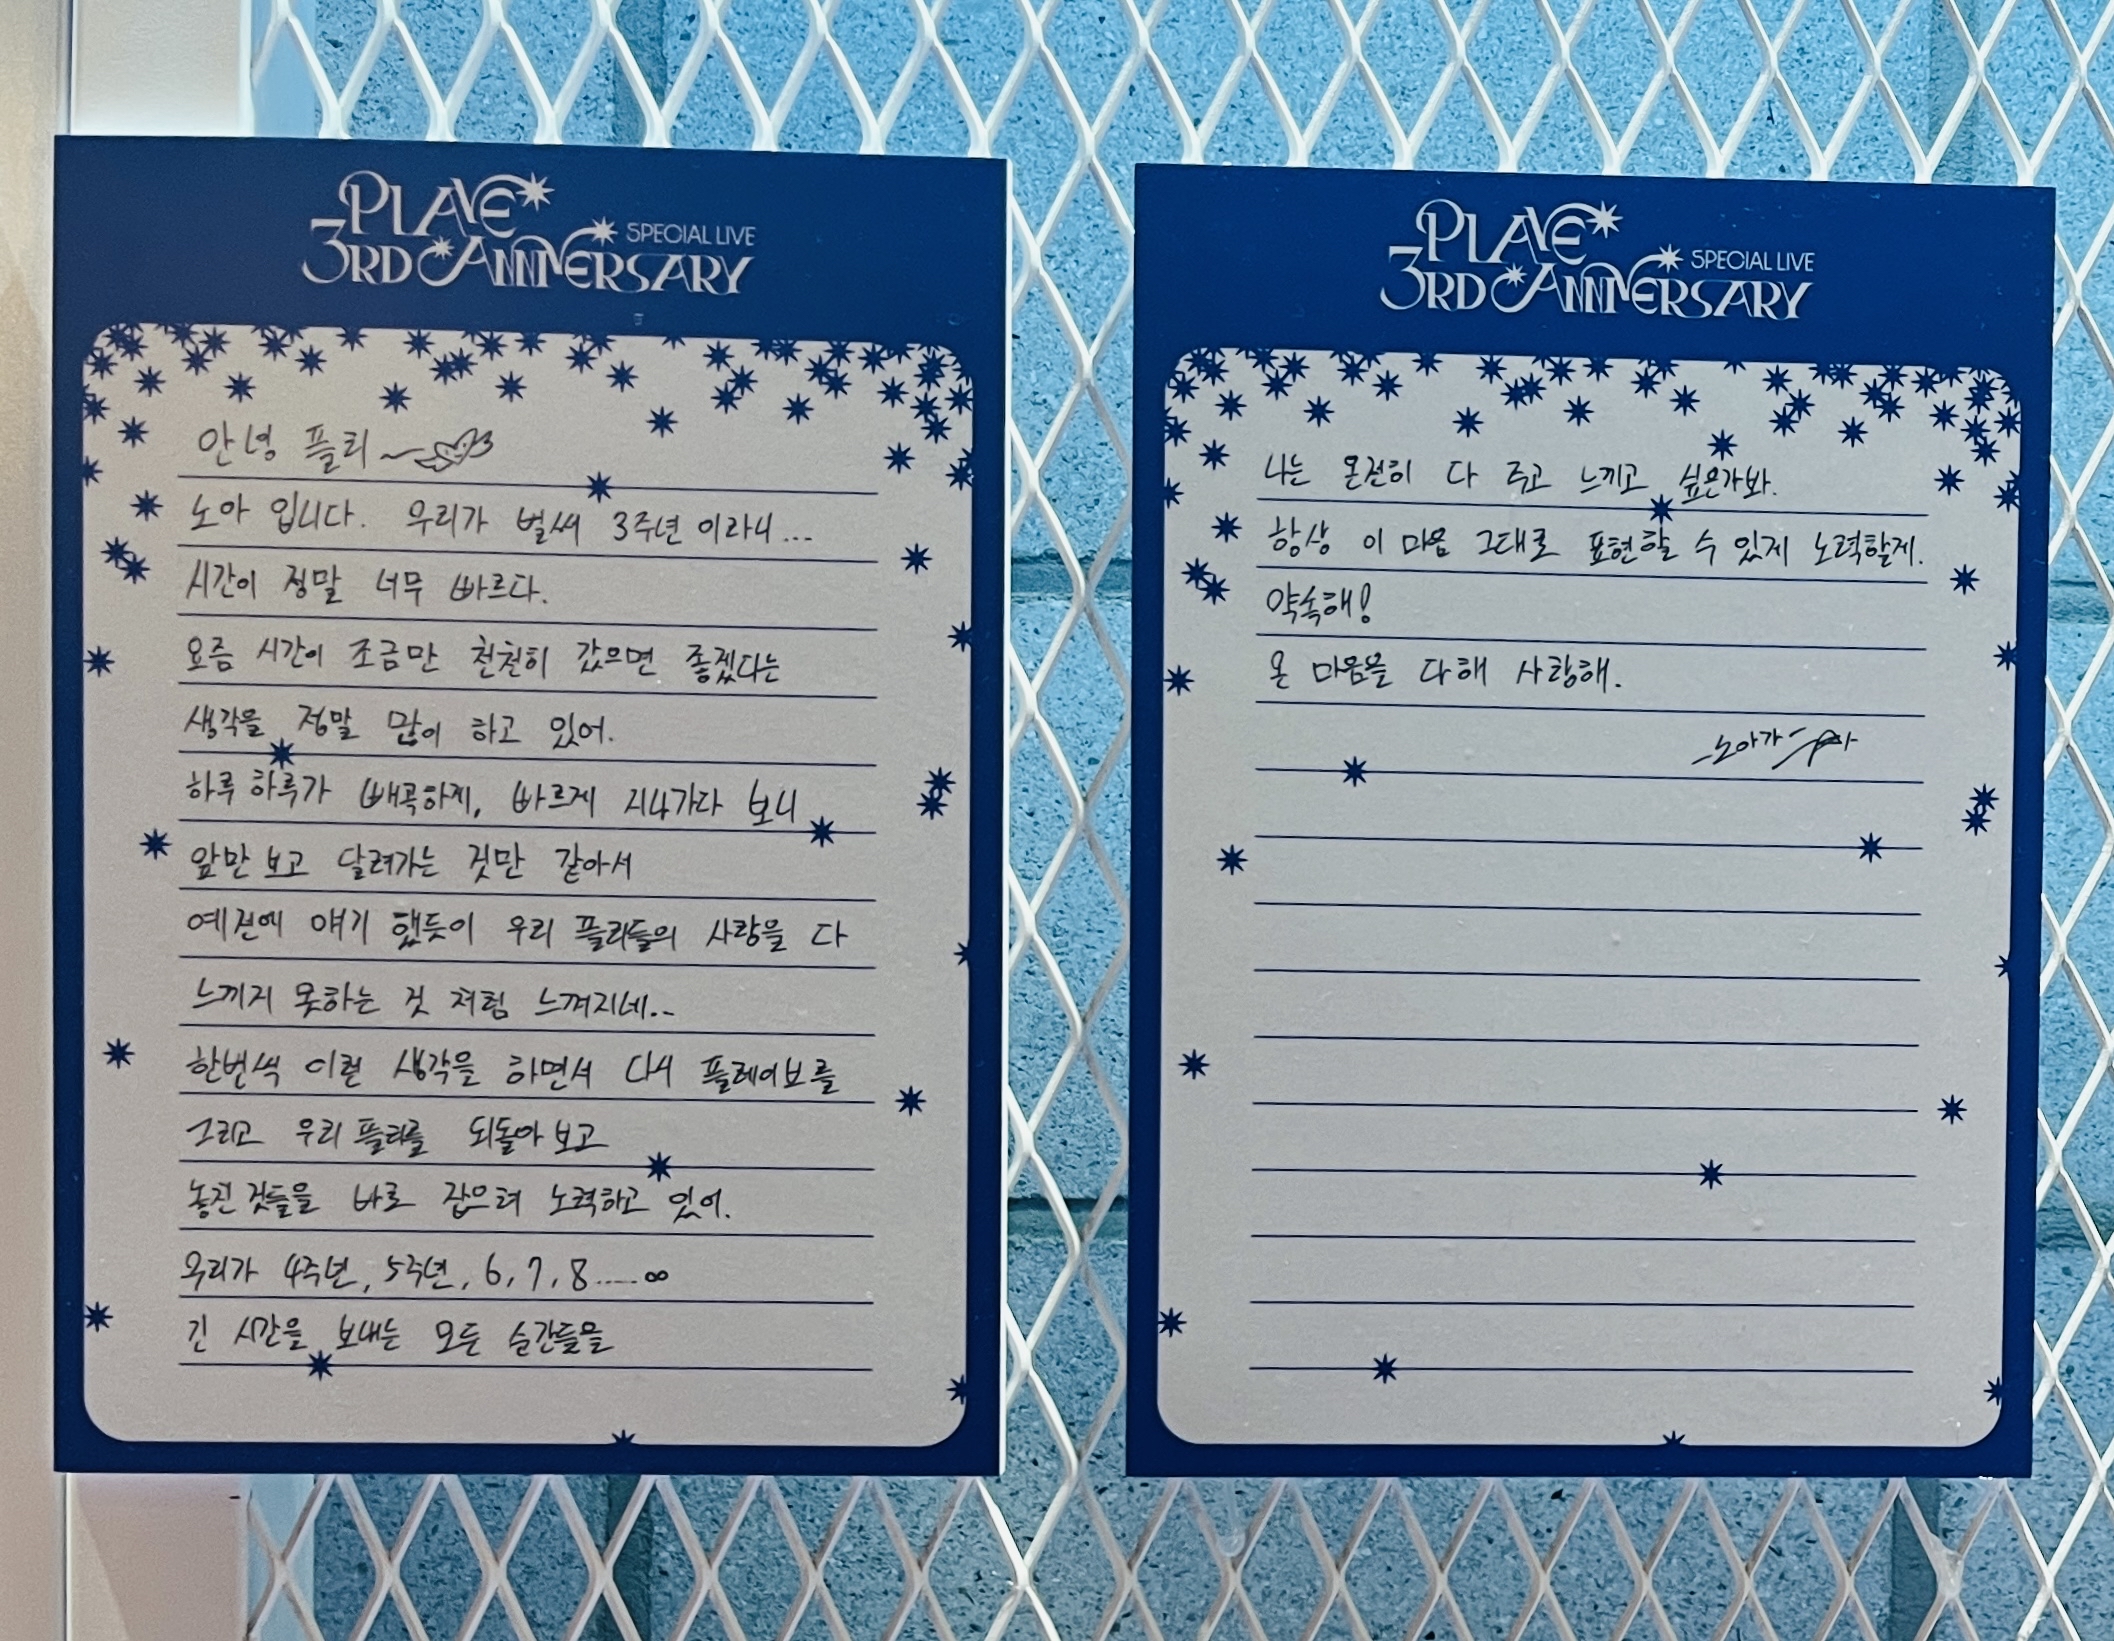 PLAVE
SPECIAL LIVE
3RD ANNIVERSARY
안녕 플리
노아 입니다. 우리가 벌써 3주년 이라니...
시간이 정말 너무 빠르다.
요즘 시간이 조금만 천천히 갔으면 좋겠다는
생각을 정말 많이 하고 있어.
하루 하루가 빼곡하게, 빠르게 지나가다 보니
앞만 보고 달려가는 것만 같아서
예전에 얘기 했듯이 우리 플리들의 사랑을 다
느끼지 못하는 것 처럼 느껴지네..
한번씩 이런 생각을 하면서 다시 플레이브를
그리고 우리 플리를 되돌아 보고
놓친 것들을 바로 잡으려 노력하고 있어.
우리가 4주년, 5주년, 6, 7, 8.....∞
긴 시간을 보내는 모든 순간들을
PLAVE
SPECIAL LIVE
3RD ANNIVERSARY
나는 온전히 다 주고 느끼고 싶은가봐.
항상 이 마음 그대로 표현할 수 있게 노력할게.
약속해!
온 마음을 다해 사랑해.
노아가